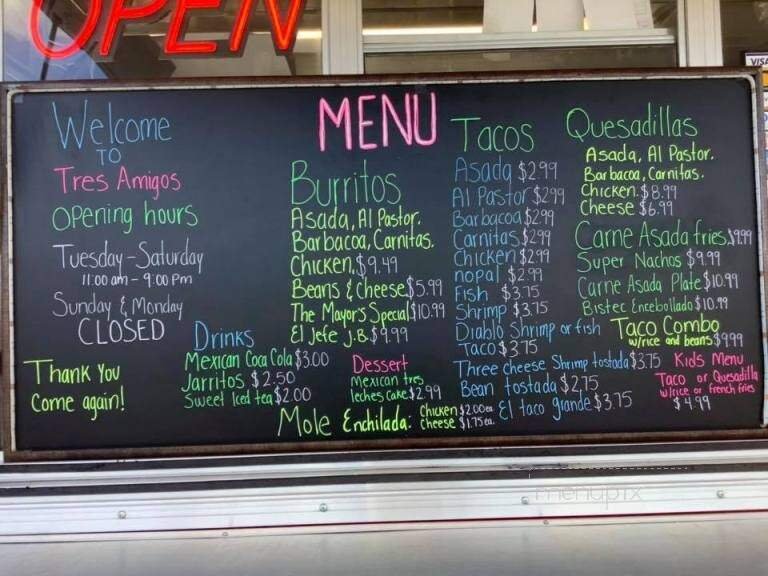 OPEN
VISA
Welcome
TO
Tres Amigos
Opening hours
Tuesday-Saturday
11:00 am - 9:00 pm
Sunday & Monday
CLOSED
Thank You
Come again!
MENU
Burritos
Asada, Al Pastor.
Barbacoa, Carnitas.
Chicken, $9.49
Beans & cheese $5.99
The Mayor's Special $10.99
El Jefe J.B. $9.99
Drinks
Mexican Coca Cola $3.00
Jarritos $2.50
Sweet Iced tea $2.00
Dessert
Mexican tres
leches cake $2.99
Mole Enchilada: Chicken $2.00 ea
Cheese $1.75 ea.
Tacos
Asada $2.99
Al Pastor $2.99
Barbacoa $2.99
Carnitas $2.99
Chicken $2.99
nopal $2.99
Fish $3.75
Shrimp $3.75
Diablo Shrimp or fish
Taco $3.75
Three cheese, Shrimp tostada $3.75
Bean tostada $2.75
El taco grande $3.75
Quesadillas
Asada, Al Pastor.
Barbacoa, Carnitas.
Chicken. $8.99
Cheese $6.99
Carne Asada fries $9.99
Super Nachos $9.99
Carne Asada Plate $10.99
Bistec Encebollado $10.99
Taco Combo
w/rice and beans $9.99
Kids Menu
Taco or Quesadilla
w/rice or french fries
$4.99
menupix